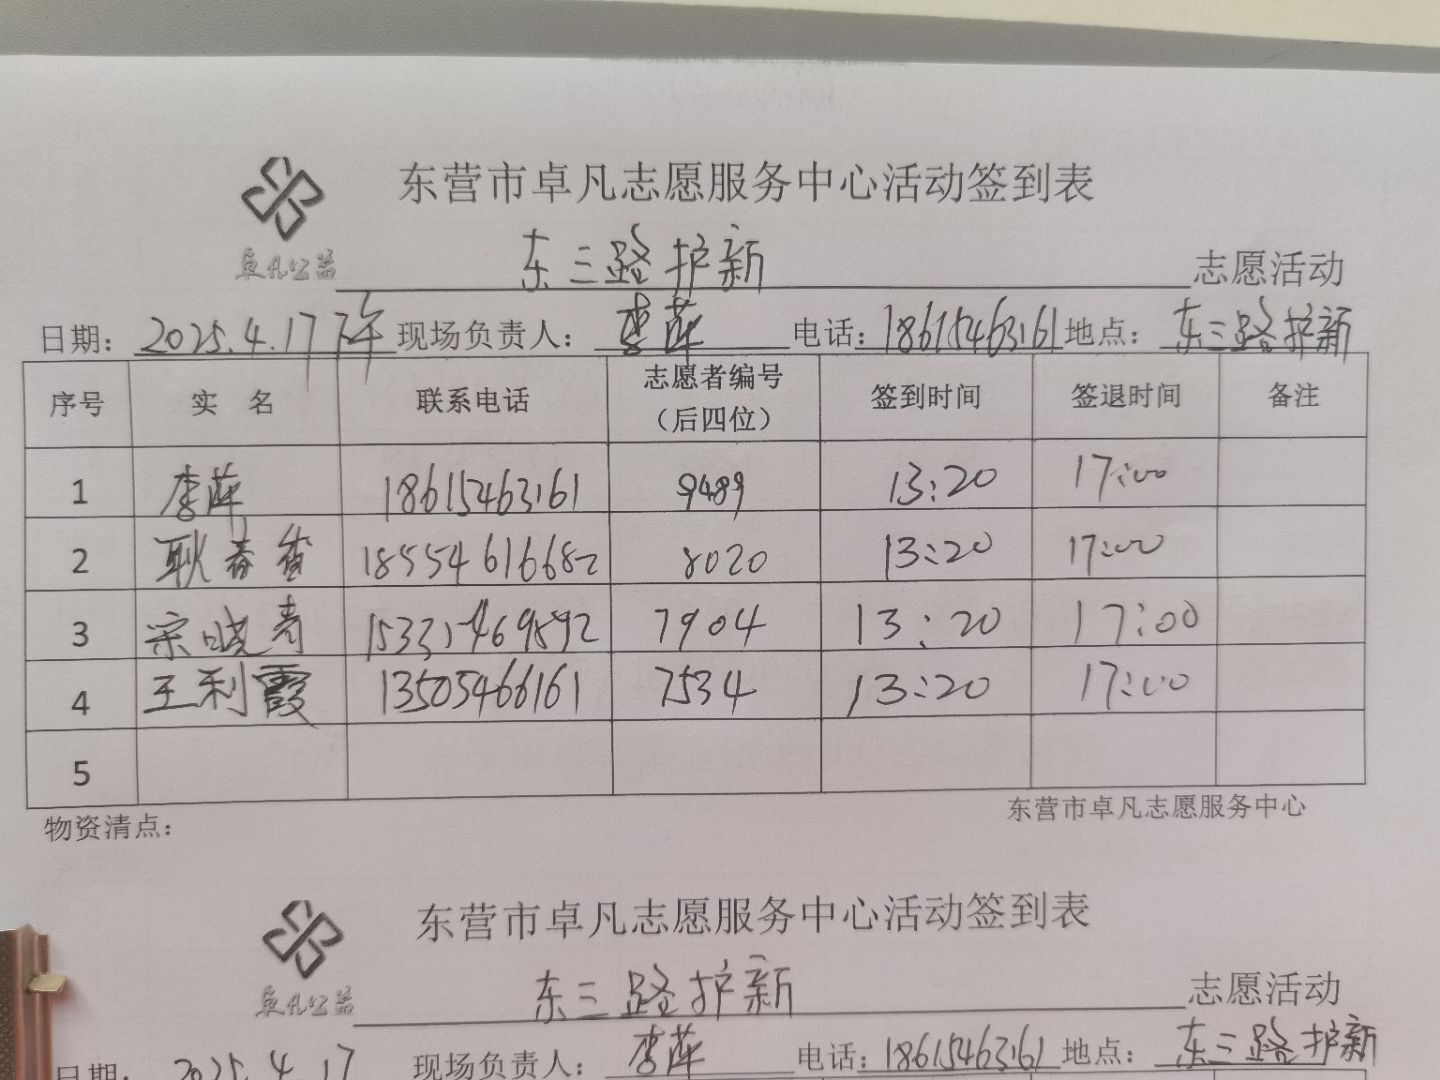 东营市卓凡志愿服务中心活动签到表
卓凡公益 东三路护新 志愿活动
日期：2025.4.17下午 现场负责人：李萍 电话：18615463161 地点：东三路护新
序号 实 名 联系电话 志愿者编号（后四位） 签到时间 签退时间 备注
1 李萍 18615463161 9489 13:20 17:00
2 耿春香 18554616682 8020 13:20 17:00
3 宋晓青 15331469892 7904 13:20 17:00
4 王利霞 13505466161 7534 13:20 17:00
5
物资清点： 东营市卓凡志愿服务中心
东营市卓凡志愿服务中心活动签到表
卓凡公益 东三路护新 志愿活动
日期：2025.4.17 现场负责人：李萍 电话：18615463161 地点：东三路护新